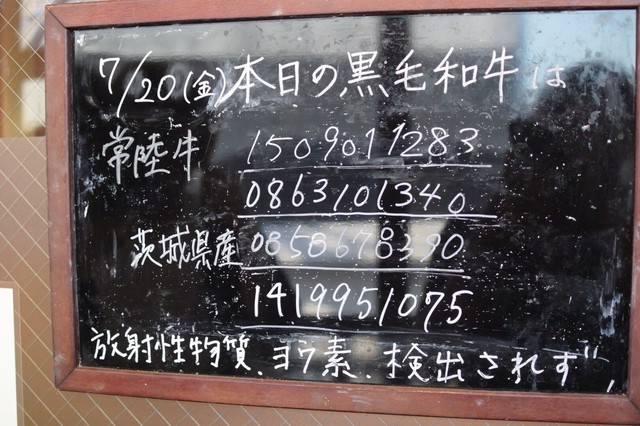 7/20(金)本日の黒毛和牛は
常陸牛 1509011283
0863101340
茨城県産 0858678390
1419951075
放射性物質、ヨウ素、検出されず、